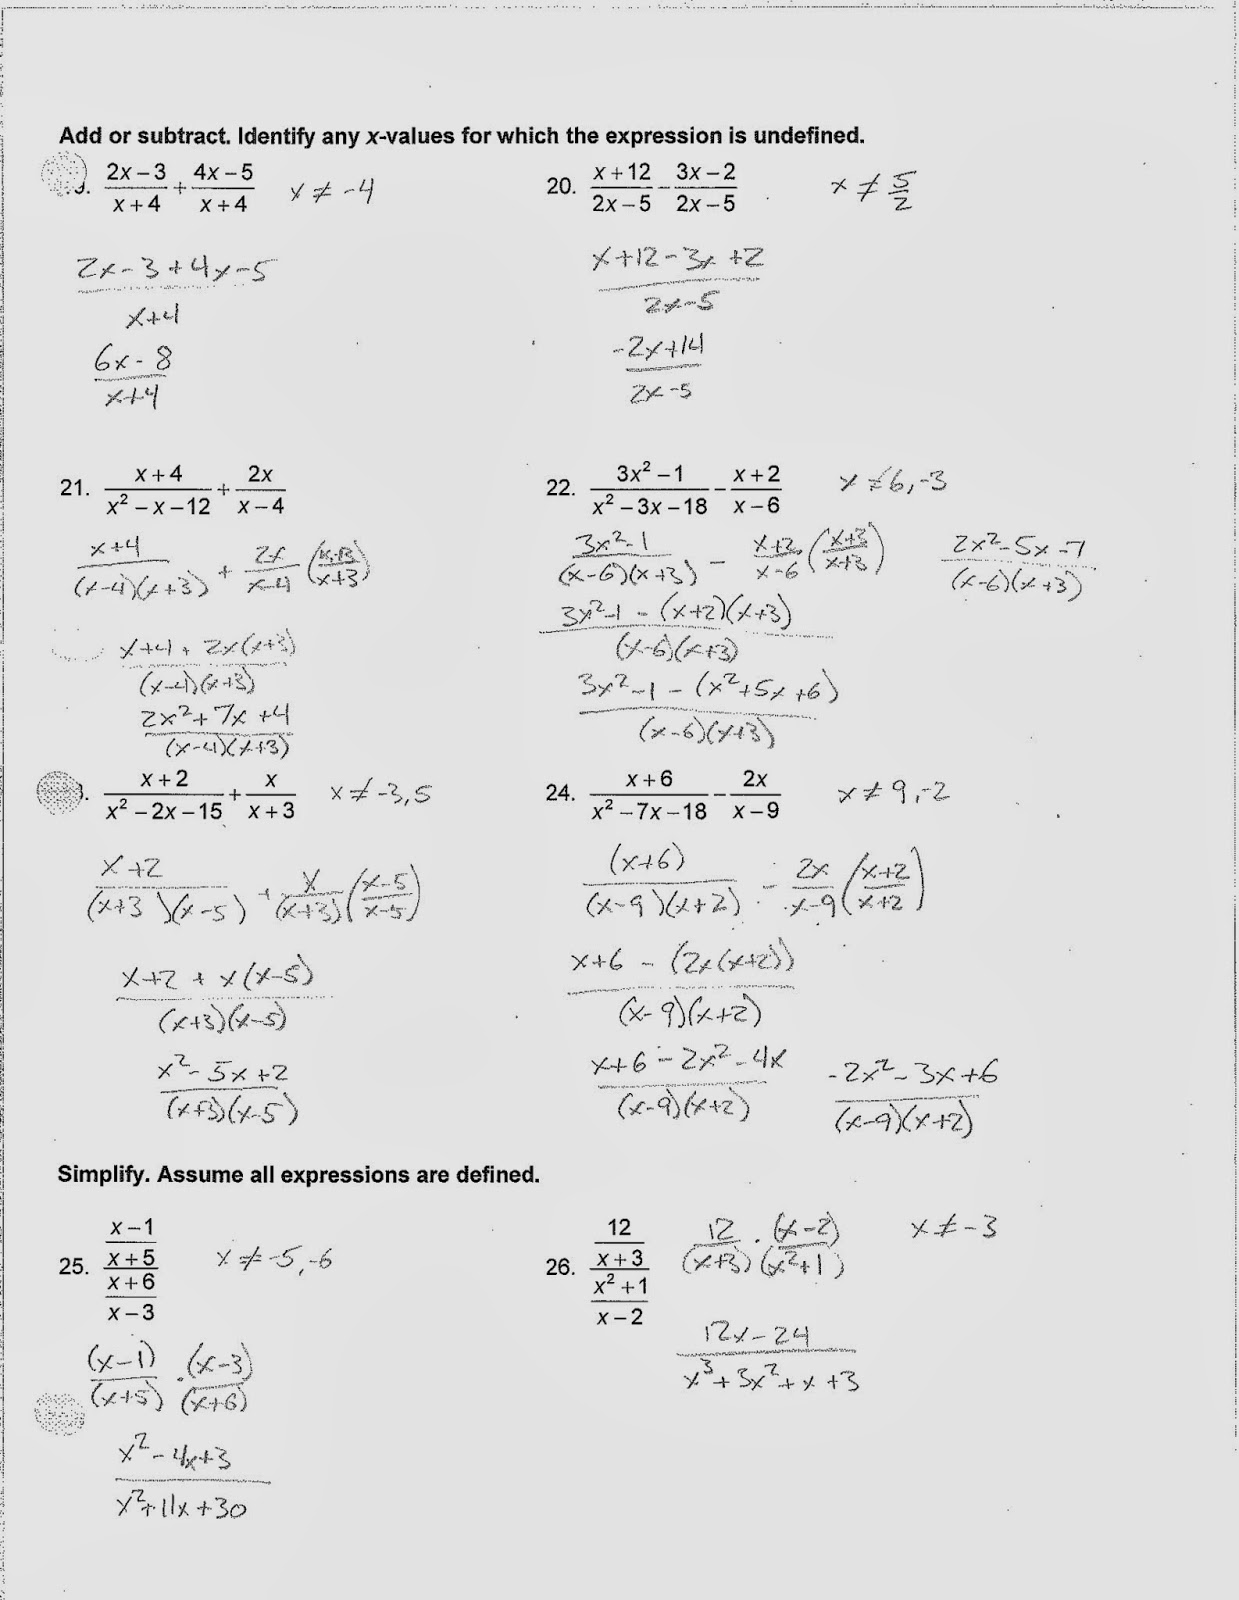 Add or subtract. Identify any x-values for which the expression is undefined.
(2x – 3)/(x + 4) + (4x – 5)/(x + 4)   x ≠ -4
(2x - 3 + 4x - 5)/(x+4)
(6x - 8)/(x+4)
20. (x + 12)/(2x – 5) – (3x – 2)/(2x – 5)   x ≠ 5/2
(x+12 - 3x + 2)/(2x-5)
(-2x+14)/(2x-5)
21. (x + 4)/(x² – x – 12) + 2x/(x – 4)
(x+4)/((x-4)(x+3)) + 2x/(x-4) ((x+3)/(x+3))
(x+4 + 2x(x+3))/((x-4)(x+3))
(2x²+7x+4)/((x-4)(x+3))
22. (3x² – 1)/(x² – 3x – 18) – (x + 2)/(x – 6)   x ≠ 6, -3
(3x²-1)/((x-6)(x+3)) - (x+2)/(x-6) ((x+3)/(x+3))   (2x²-5x-7)/((x-6)(x+3))
(3x²-1 - (x+2)(x+3))/((x-6)(x+3))
(3x²-1 - (x²+5x+6))/((x-6)(x+3))
(x + 2)/(x² – 2x – 15) + x/(x + 3)   x ≠ -3, 5
(x+2)/((x+3)(x-5)) + x/(x+3) ((x-5)/(x-5))
(x+2 + x(x-5))/((x+3)(x-5))
(x²-5x+2)/((x+3)(x-5))
24. (x + 6)/(x² – 7x – 18) – 2x/(x – 9)   x ≠ 9, -2
(x+6)/((x-9)(x+2)) - 2x/(x-9) ((x+2)/(x+2))
(x+6 - (2x(x+2)))/((x-9)(x+2))
(x+6 - 2x² - 4x)/((x-9)(x+2))   (-2x²-3x+6)/((x-9)(x+2))
Simplify. Assume all expressions are defined.
25. ((x – 1)/(x + 5))/((x + 6)/(x – 3))   x ≠ -5, -6
(x-1)/(x+5) · (x-3)/(x+6)
(x²-4x+3)/(x²+11x+30)
26. (12/(x + 3))/((x² + 1)/(x – 2))   12/(x+3) · (x-2)/(x²+1)   x ≠ -3
(12x-24)/(x³+3x²+x+3)